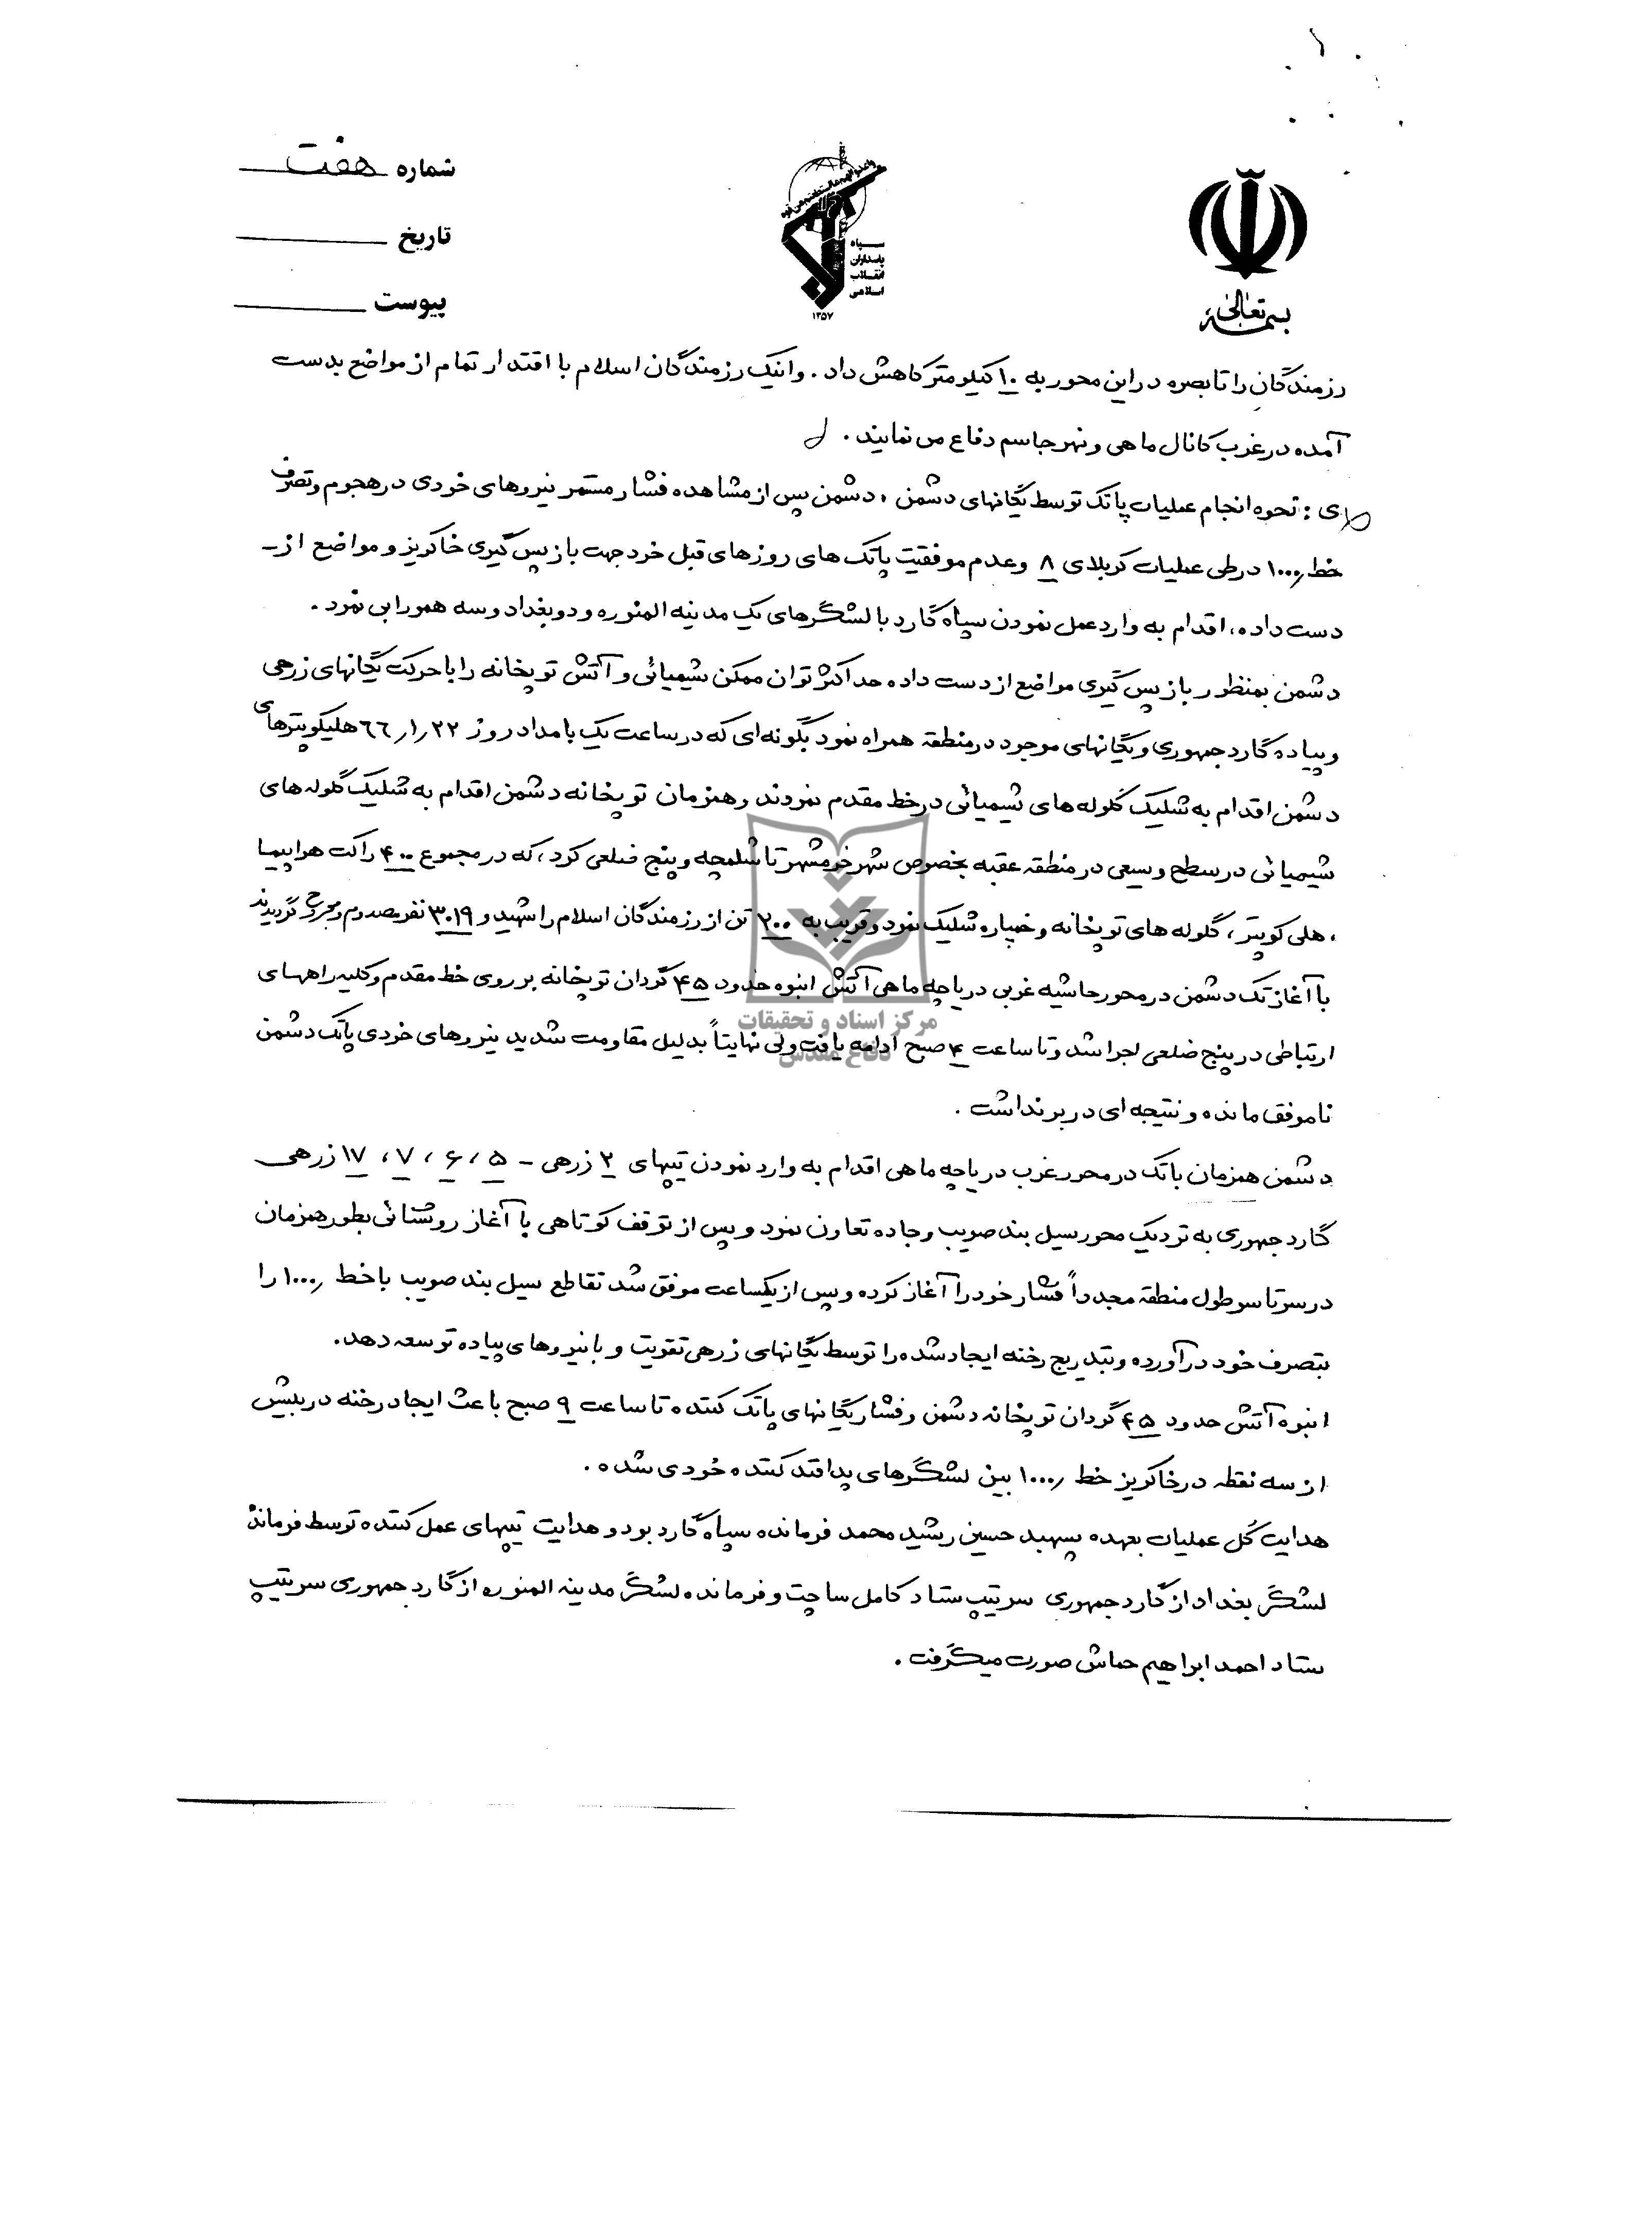 شماره هفت
تاریخ
پیوست
سپاه
پاسداران
انقلاب
اسلامی
۱۳۵۷
بسمه تعالی
رزمندگان را تا بصره در این محور به ۱۰ کیلومتر کاهش داد. و اینک رزمندگان اسلام با اقتدار تمام از مواضع بدست
آمده در غرب کانال ماهی و نهر جاسم دفاع می نمایند.
ی: نحوه انجام عملیات پاتک توسط یگانهای دشمن، دشمن پس از مشاهده فشار مستمر نیروهای خودی در هجوم و تصرف
خط ۱۰۰۰ در طی عملیات کربلای ۸ و عدم موفقیت پاتک های روزهای قبل خود جهت باز پس گیری خاکریز و مواضع از-
دست داده، اقدام به وارد عمل نمودن سپاه گارد با لشگرهای یک مدینه المنوره و دو بغداد و سه همورابی نمود.
دشمن بمنظور باز پس گیری مواضع از دست داده حداکثر توان ممکن شیمیائی و آتش توپخانه را با حرکت یگانهای زرهی
و پیاده گارد جمهوری و یگانهای موجود در منطقه همراه نمود بگونه ای که در ساعت یک بامداد روز ۶۶/۱/۲۲ هلیکوپترهای
دشمن اقدام به شلیک گلوله های شیمیائی در خط مقدم نمودند و همزمان توپخانه دشمن اقدام به شلیک گلوله های
شیمیائی در سطح وسیعی در منطقه عقبه بخصوص شهر خرمشهر تا شلمچه و پنج ضلعی کرد، که در مجموع ۴۰۰ راکت هواپیما
، هلی کوپتر، گلوله های توپخانه و خمپاره شلیک نمود و قریب به ۲۰۰ تن از رزمندگان اسلام را شهید و ۳۰۱۹ نفر مصدوم و مجروح گردیدند
با آغاز تک دشمن در محور حاشیه غربی دریاچه ماهی آتش انبوه حدود ۴۵ گردان توپخانه بر روی خط مقدم و کلیه راههای
ارتباطی در پنج ضلعی اجرا شد و تا ساعت ۴ صبح ادامه یافت ولی نهایتاً بدلیل مقاومت شدید نیروهای خودی پاتک دشمن
ناموفق مانده و نتیجه ای در بر نداشت.
دشمن همزمان با تک در محور غرب دریاچه ماهی اقدام به وارد نمودن تیپهای ۲ زرهی - ۵، ۶، ۷، ۱۷ زرهی
گارد جمهوری به نزدیک محور سیل بند صویب و جاده تعاون نمود و پس از توقف کوتاهی با آغاز روشنائی بطور همزمان
در سرتاسر طول منطقه مجدداً فشار خود را آغاز کرده و پس از یکساعت موفق شد تقاطع سیل بند صویب با خط ۱۰۰۰ را
بتصرف خود درآورده و بتدریج رخنه ایجاد شده را توسط یگانهای زرهی تقویت و با نیروهای پیاده توسعه دهد.
انبوه آتش حدود ۴۵ گردان توپخانه دشمن و فشار یگانهای پاتک کننده تا ساعت ۹ صبح باعث ایجاد رخنه در بیش
از سه نقطه در خاکریز خط ۱۰۰۰ بین لشگرهای پدافند کننده خودی شده.
هدایت کل عملیات بعهده سپهبد حسین رشید محمد فرمانده سپاه گارد بود و هدایت تیپهای عمل کننده توسط فرمانده
لشگر بغداد از گارد جمهوری سرتیپ ستاد کامل ساچت و فرمانده لشگر مدینه المنوره از گارد جمهوری سرتیپ
ستاد احمد ابراهیم حماش صورت میگرفت.
مرکز اسناد و تحقیقات
دفاع مقدس